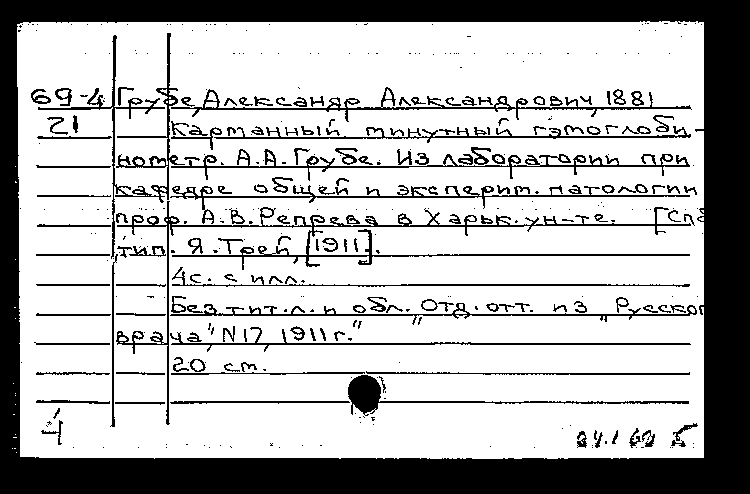 69-4 Грубе, Александр Александрович, 1881
21 Карманный минутный гэмоглоби-
нометр. А.А.Грубе. Из лаборатории при
кафедре общей и эксперим. патологии
проф. А.В.Репрева в Харьк.ун-те. [Спб
тип. Я.Трей, [1911].
4с. с илл.
Без тит.л. и обл. "Отд. отт. из "Русског
врача", N17, 1911 г."
20 см.
4